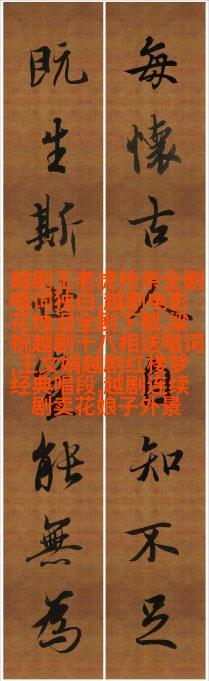 每懷古知不足
既生斯能無為
越剧王老虎抢亲全剧
唱词独白,越剧电影
花烛泪全剧下载,梁
祝越剧十八相送唱词
,王文娟越剧红楼梦
经典唱段,越剧连续
剧卖花娘子外景